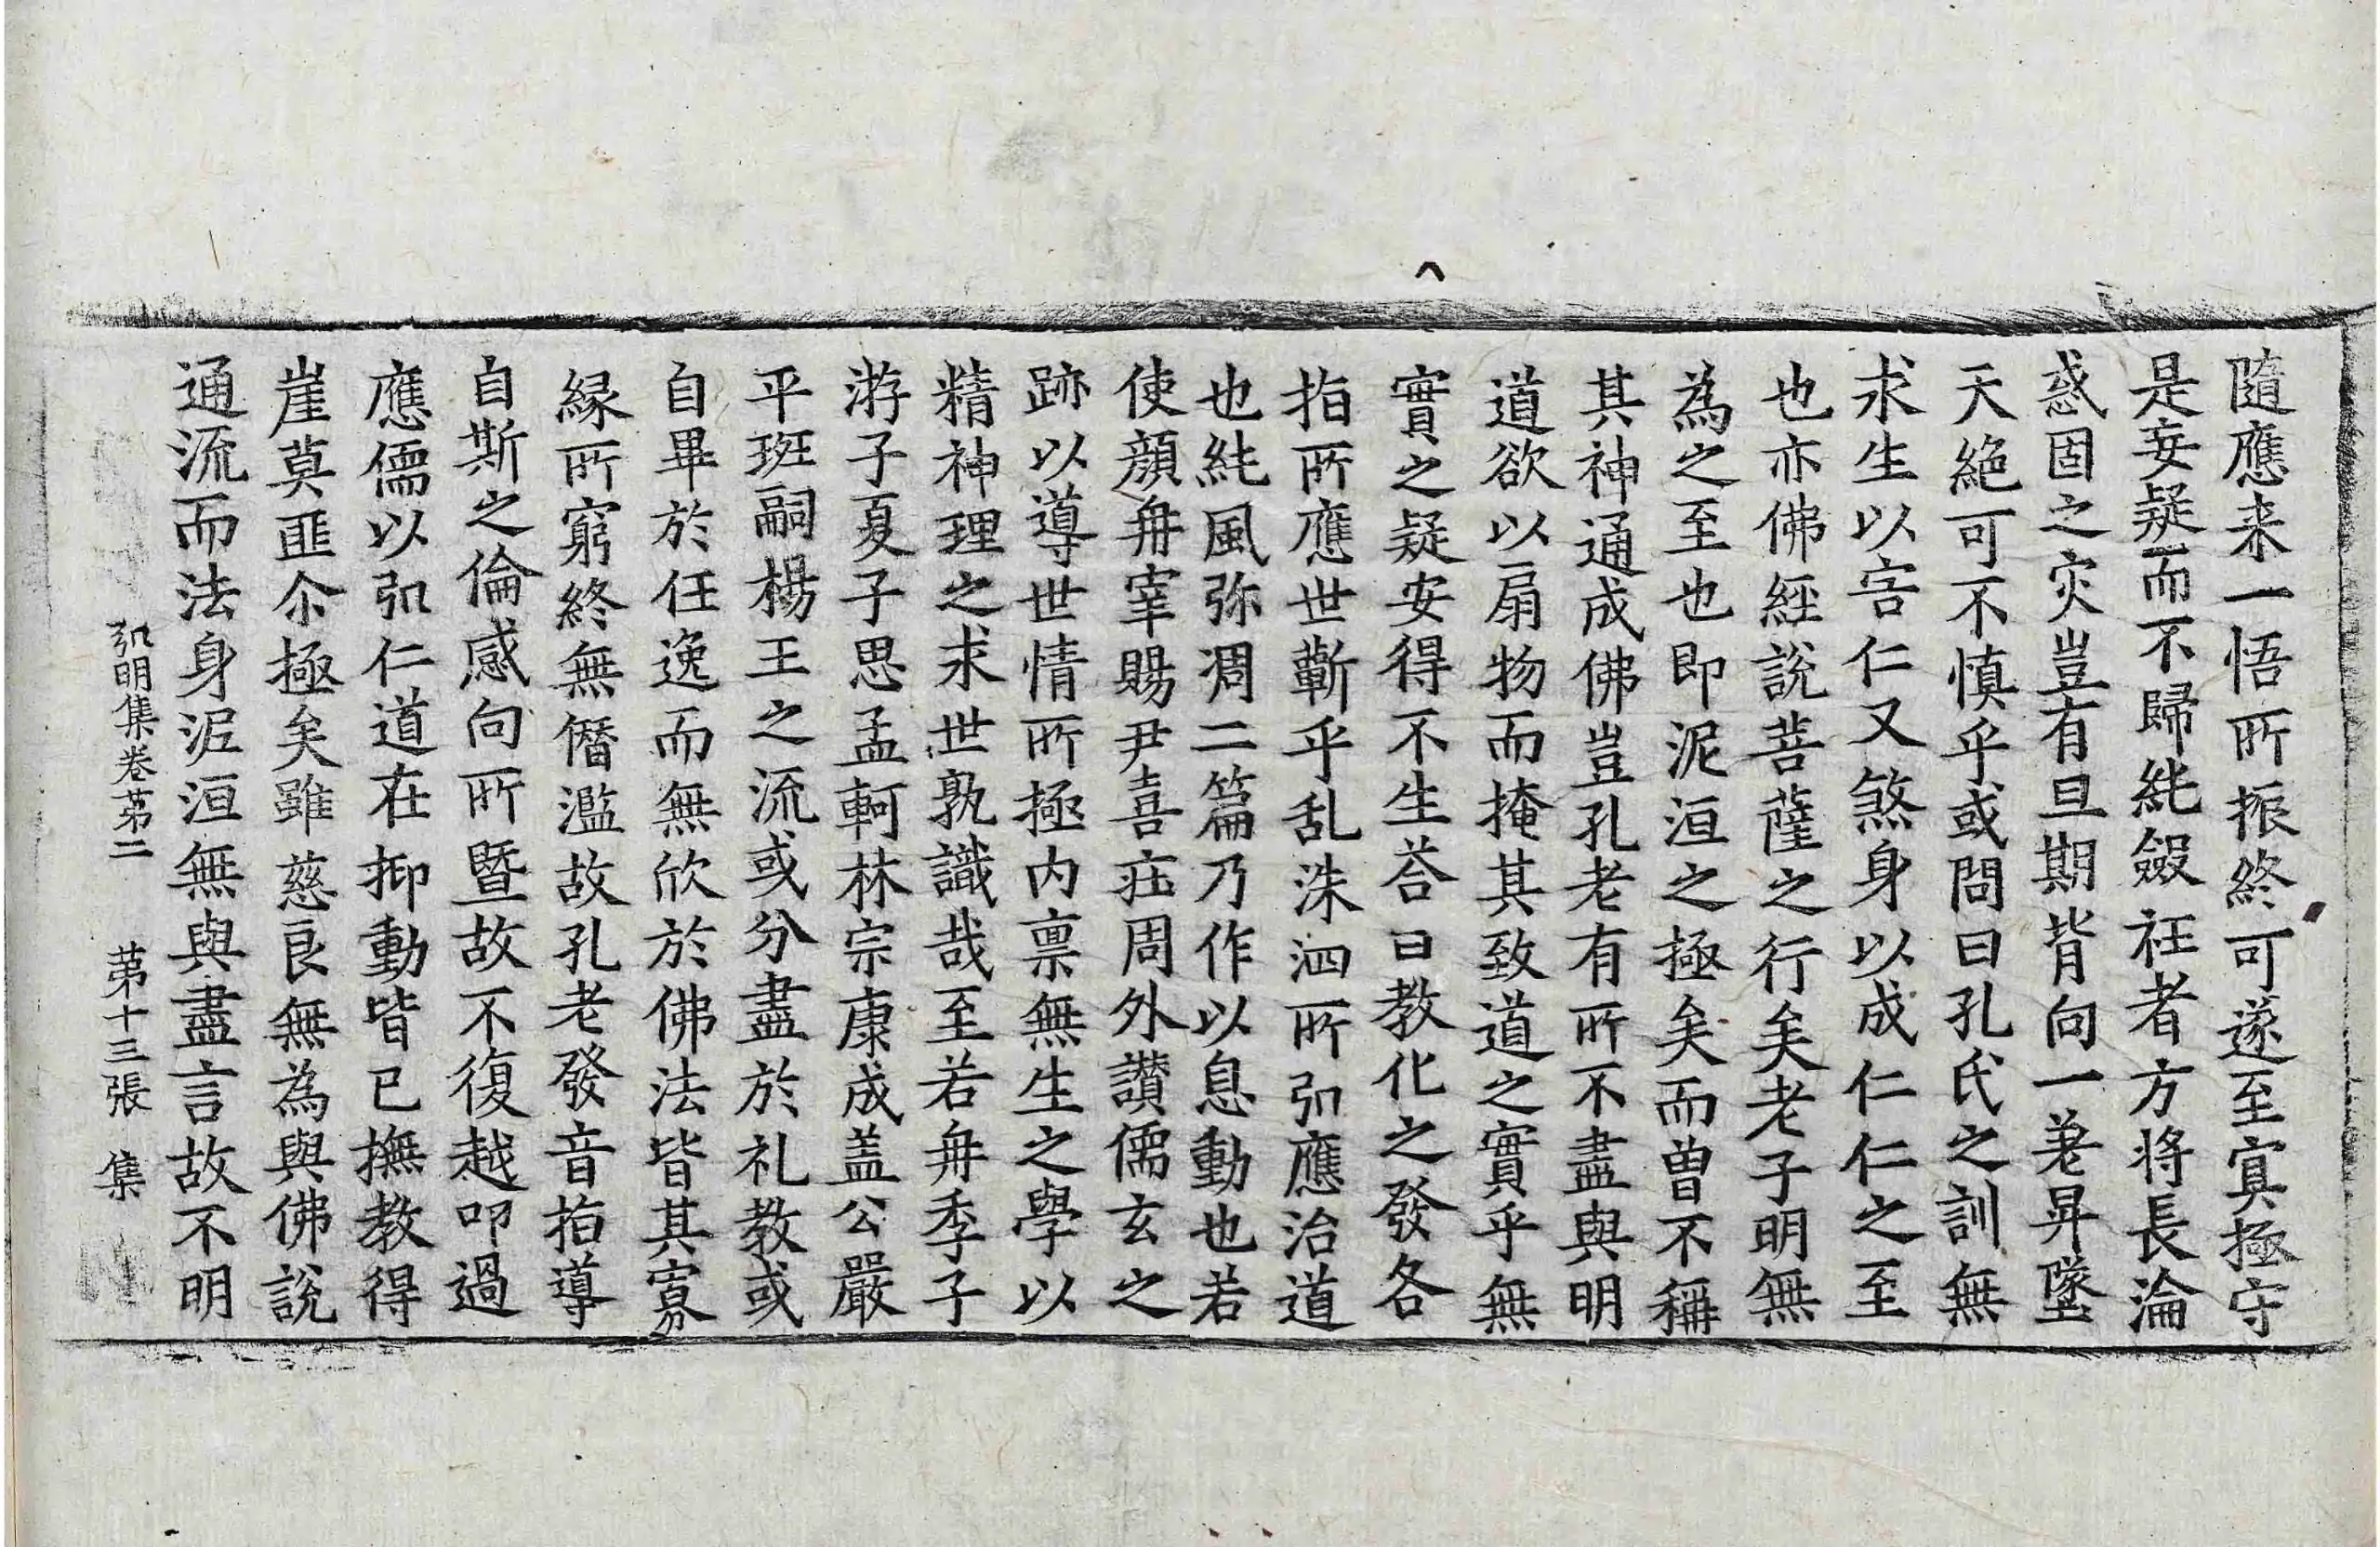 隨應来一悟所振終可遂至冥極守
是妄疑而不歸純叙衽者方將長淪
惑固之灾豈有旦期背向一差昇墜
天絶可不慎乎或問曰孔氏之訓無
求生以害仁又煞身以成仁仁之至
也亦佛經說菩薩之行矣老子明無
為之至也即泥洹之極矣而曽不稱
其神通成佛豈孔老有所不盡與明
道欲以扇物而掩其致道之實乎無
實之疑安得不生荅曰教化之發各
指所應世蘄乎乱洙泗所弘應治道
也純風弥凋二篇乃作以息動也若
使顔冉宰賜尹喜莊周外讃儒玄之
跡以導世情所極内禀無生之學以
精神理之求世孰識哉至若冉季子
游子夏子思孟軻林宗康成盖公嚴
平班嗣楊王之流或分盡於礼教或
自畢於任逸而無欣於佛法皆其寡
緣所窮終無僭濫故孔老發音指導
自斯之倫感向所暨故不復越叩過
應儒以弘仁道在抑動皆已撫教得
崖莫匪尒極矣雖慈良無為與佛說
通流而法身泥洹無與盡言故不明
弘明集卷第二　第十三張　集